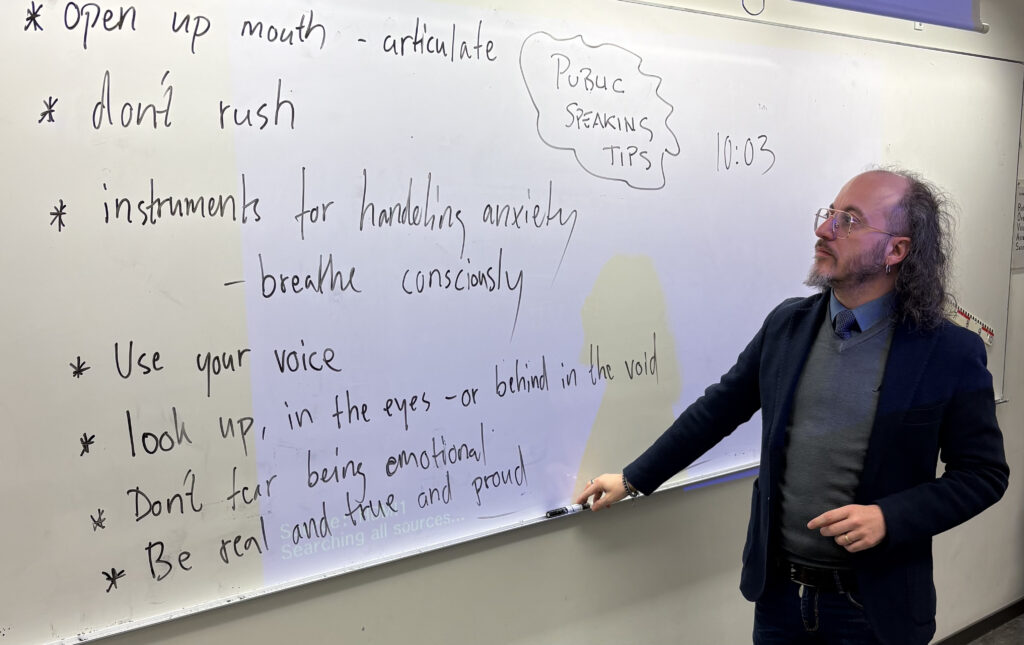 * Open up mouth - articulate
* don't rush
* instruments for handeling anxiety
- breathe consciously
* Use your voice
* look up, in the eyes - or behind in the void
* Don't fear being emotional
* Be real and true and proud
PUBLIC
SPEAKING
TIPS
10:03
Searching all sources...